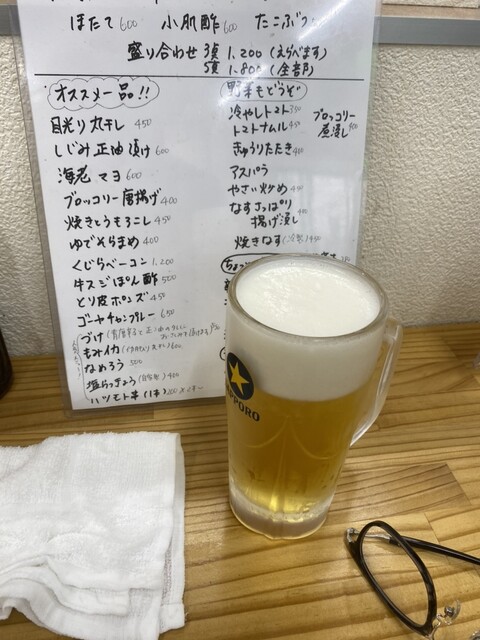 ほたて600 小肌酢600 たこぶつ
盛り合わせ 3点 1,200(えらべます)
5点 1,800(全部)
オススメ一品!!
目光り丸干し 450
しじみ正油漬け 600
海老マヨ 600
ブロッコリー唐揚げ 400
焼きとうもろこし 450
ゆでそらまめ 400
くじらベーコン 1,200
牛スジぽん酢 500
とり皮ポンズ 450
ゴーヤチャンプルー 650
づけ
もみイカ 600
なめろう 500
塩らっきょう(自家製) 400
ハツモト串(1本)
野菜もどうぞ
冷やしトマト 350
トマトナムル 450
きゅうりたたき 400
アスパラ
やさい炒め 450
なすさっぱり
揚げ浸し 400
焼きなす(冷製) 450
ブロッコリー
煮浸し 400
SAPPORO